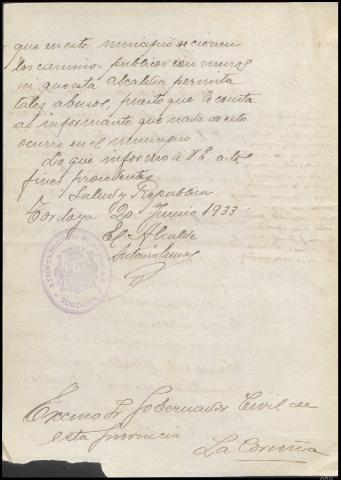 que en este municipio se cierren
los caminos publicos con muros
ni que esta alcaldia permita
tales abusos, puesto que le consta
al informante que nada de esto
ocurre en el municipio.
Lo que informo á V.E. a los
fines procedentes
Salud y Republica
Tordoya 20 Junio 1933
El Alcalde
Antonio
AYUNTAMIENTO
TORDOYA
Excmo Sr Gobernador Civil de
esta provincia
La Coruña